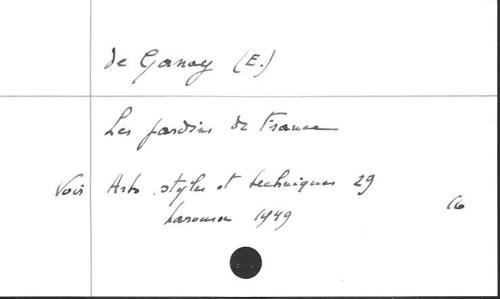 de Ganay (E.)
Les jardins de France
Voir Arts, styles et techniques 29
Larousse 1949